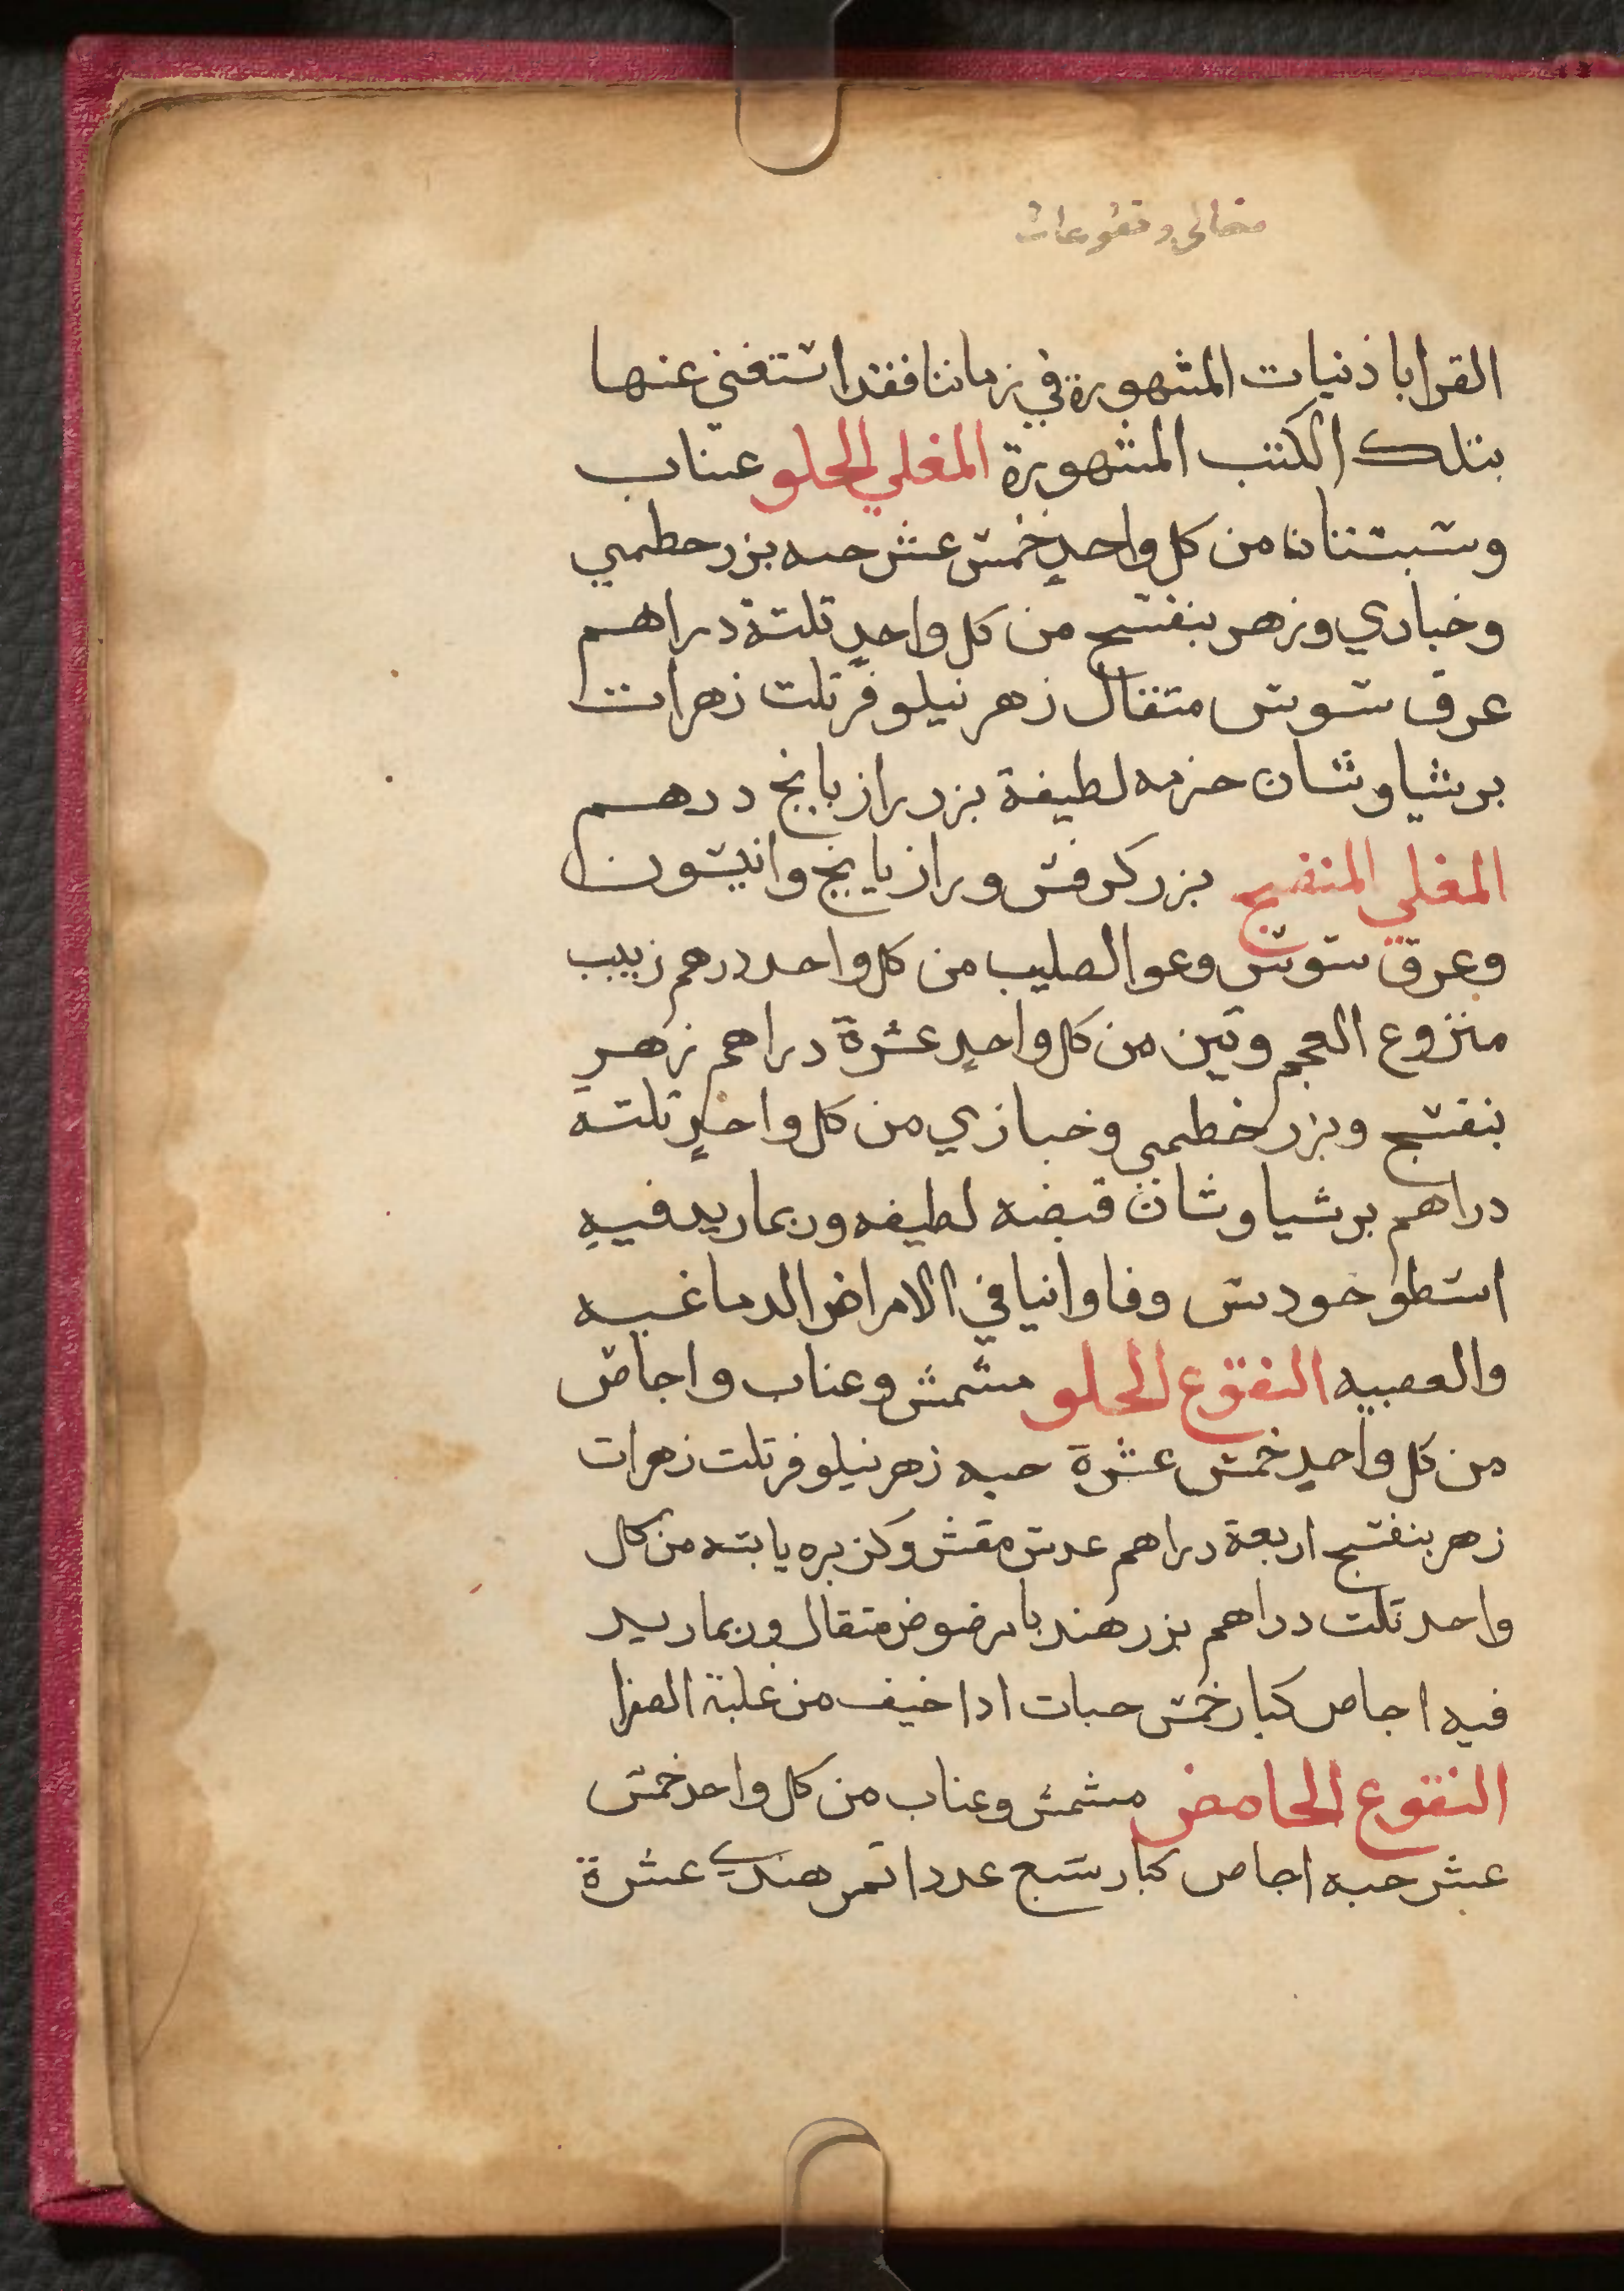 مغالي ونقوعات
القراباذنيات المشهورة في زماننا فقد استغني عنها
بتلك الكتب المشهورة المغلي الحلو عناب
وسبستان من كل واحدٍ خمس عشر حبه بزر خطمي
وخبازي وزهر بنفسج من كل واحدٍ ثلثة دراهم
عرق سوس مثقال زهر نيلوفر ثلث زهرات
برشياوشان حزمه لطيفة بزر رازيانج درهم
المغلي المنضج بزر كرفس ورازيانج وانيسون
وعرق سوس وعود الصليب من كل واحد درهم زبيب
منزوع العجم وتين من كل واحدٍ عشرة دراهم زهرِ
بنفسج وبزر خطمي وخبازي من كل واحدٍ ثلثه
دراهم برشياوشان قبضه لطيفه وربما زيد فيهِ
اسطوخودس وفاوانيا في الامراض الدماغيه
والعصبيه النقوع الحلو مشمش وعناب واجاص
من كل واحدٍ خمس عشرة حبه زهر نيلوفر ثلث زهرات
زهر بنفسج اربعة دراهم عدس مقشر وكزبره يابسه من كل
واحد ثلث دراهم بزر هندبا مرضوض مثقال وربما زيد
فيه اجاص كبار خمس حبات اذا خيف من غلبة الصفرا
النقوع الحامض مشمش وعناب من كل واحد خمس
عشر حبه اجاص كبار سبع عددا تمر هندي عشرة